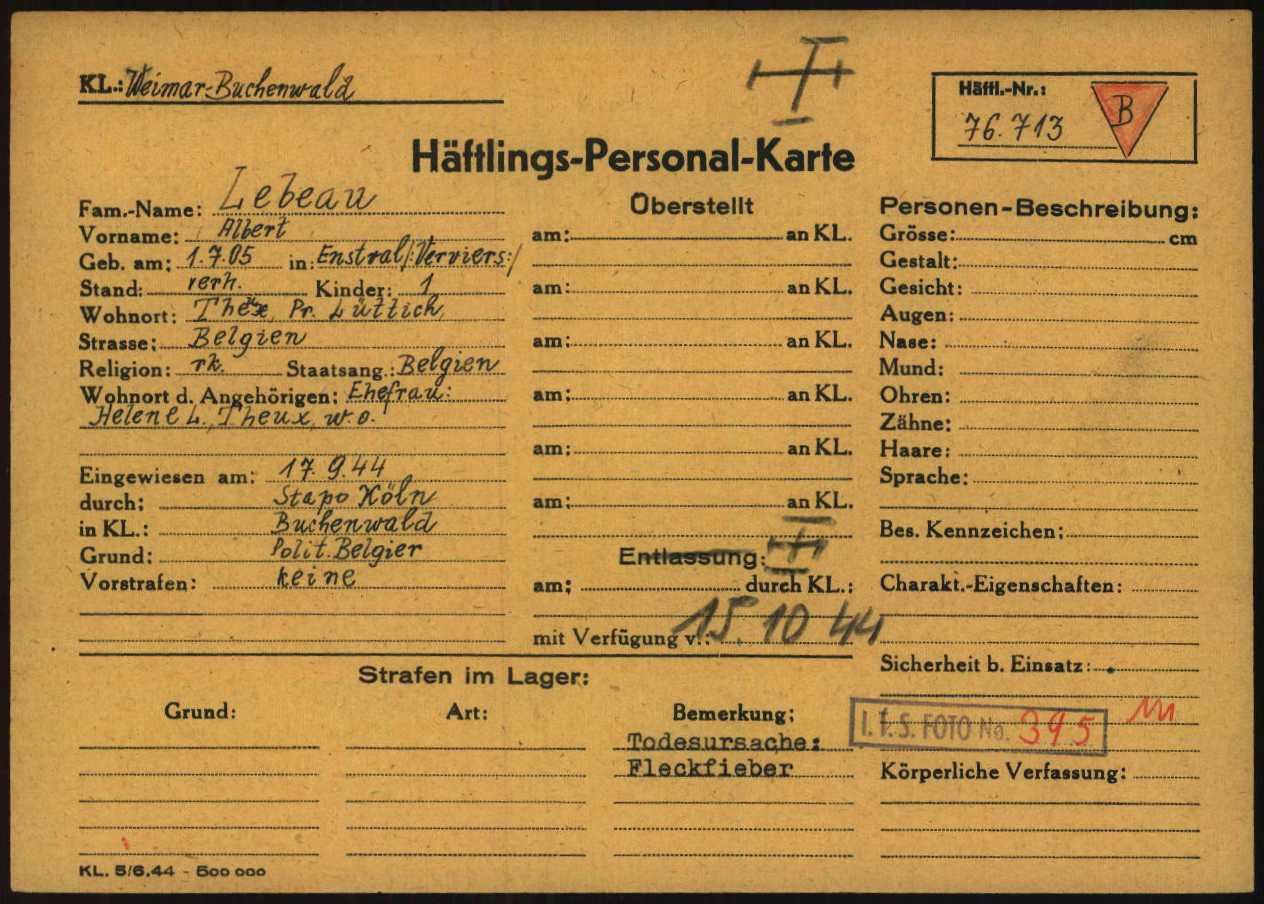 KL.: Weimar-Buchenwald
Häftl.-Nr.:
76.713
B
Häftlings-Personal-Karte
Fam.-Name: Lebeau
Vorname: Albert
Geb. am: 1.7.05 in: Enstral/:Verviers:/
Stand: verh. Kinder: 1
Wohnort: Theux, Pr. Lüttich
Strasse: Belgien
Religion: rk. Staatsang.: Belgien
Wohnort d. Angehörigen: Ehefrau:
Helene L., Theux, w.o.
Eingewiesen am: 17.9.44
durch: Stapo Köln
in KL.: Buchenwald
Grund: Polit. Belgier
Vorstrafen: keine
Überstellt
am: an KL.
am: an KL.
am: an KL.
am: an KL.
am: an KL.
am: an KL.
Entlassung:
am: durch KL.:
15.10 44
mit Verfügung v.:
Personen-Beschreibung:
Grösse: cm
Gestalt:
Gesicht:
Augen:
Nase:
Mund:
Ohren:
Zähne:
Haare:
Sprache:
Bes. Kennzeichen:
Charakt.-Eigenschaften:
Sicherheit b. Einsatz:
I.T.S. FOTO No. 395
Körperliche Verfassung:
Strafen im Lager:
Grund: Art: Bemerkung:
Todesursache:
Fleckfieber
KL. 5/6.44 - 500 000